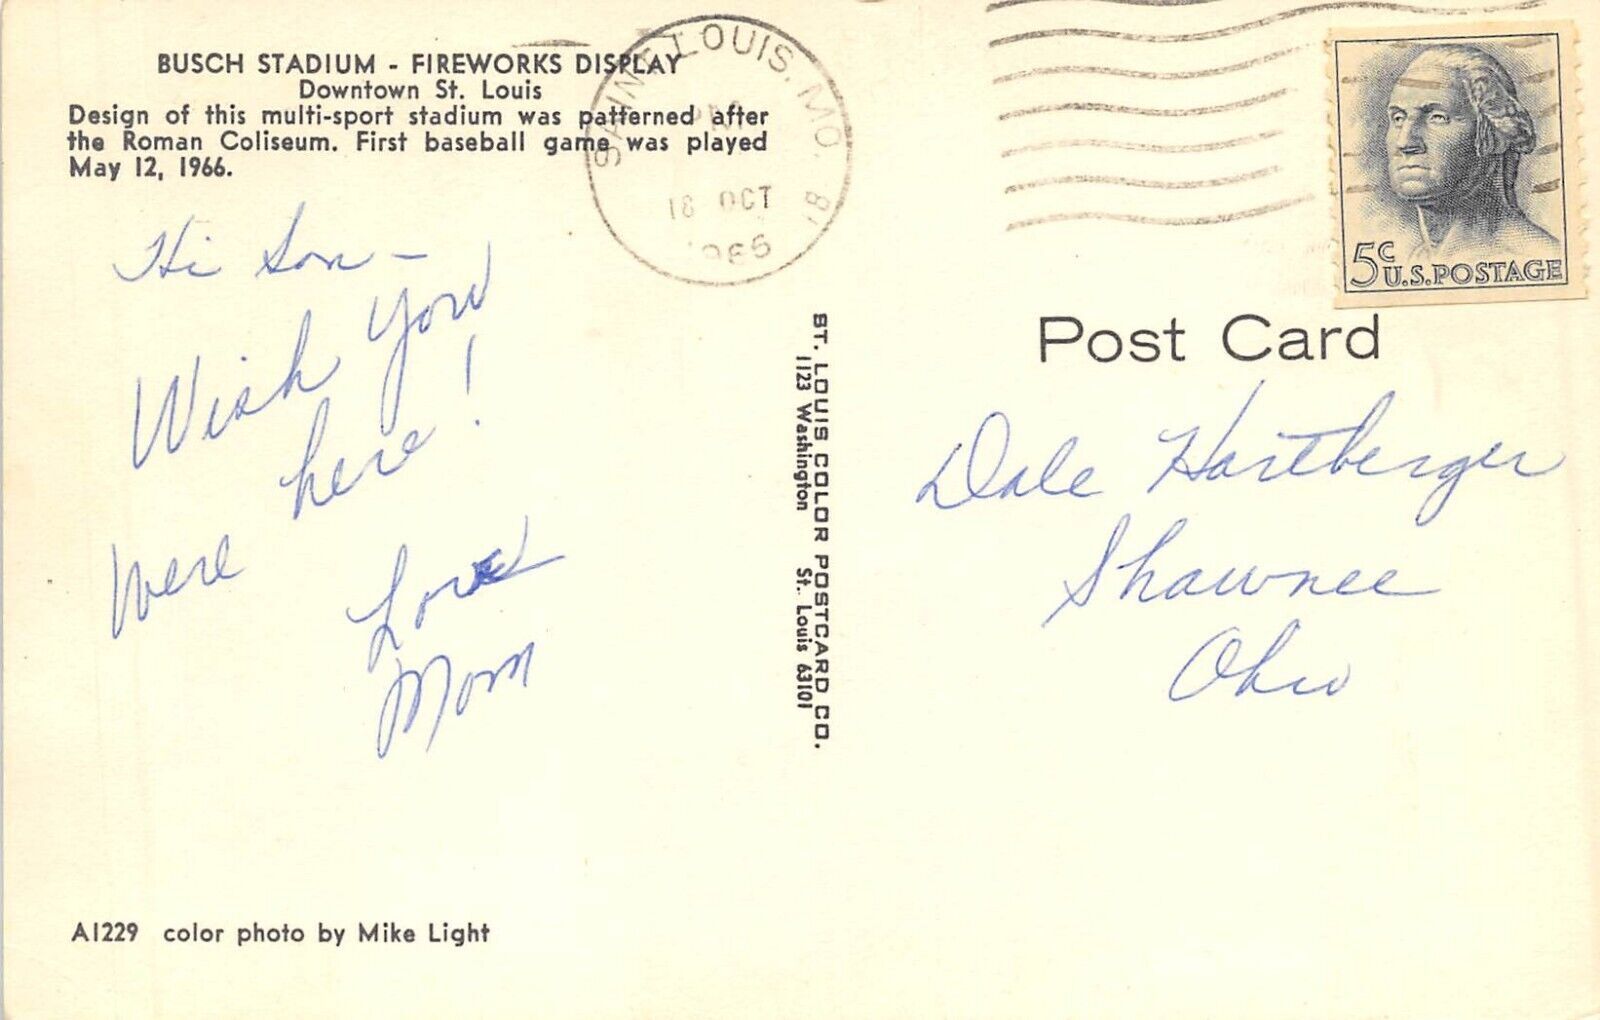 BUSCH STADIUM - FIREWORKS DISPLAY
Downtown St. Louis
Design of this multi-sport stadium was patterned after
the Roman Coliseum. First baseball game was played
May 12, 1966.
Hi Son -
Wish You
were here!
Love
Mom
A1229 color photo by Mike Light
ST. LOUIS COLOR POSTCARD CO.
1123 Washington St. Louis 63101
SAINT LOUIS, MO.
PM
18 OCT
1966
5c U.S. POSTAGE
Post Card
Dale Hartberger
Shawnee
Ohio